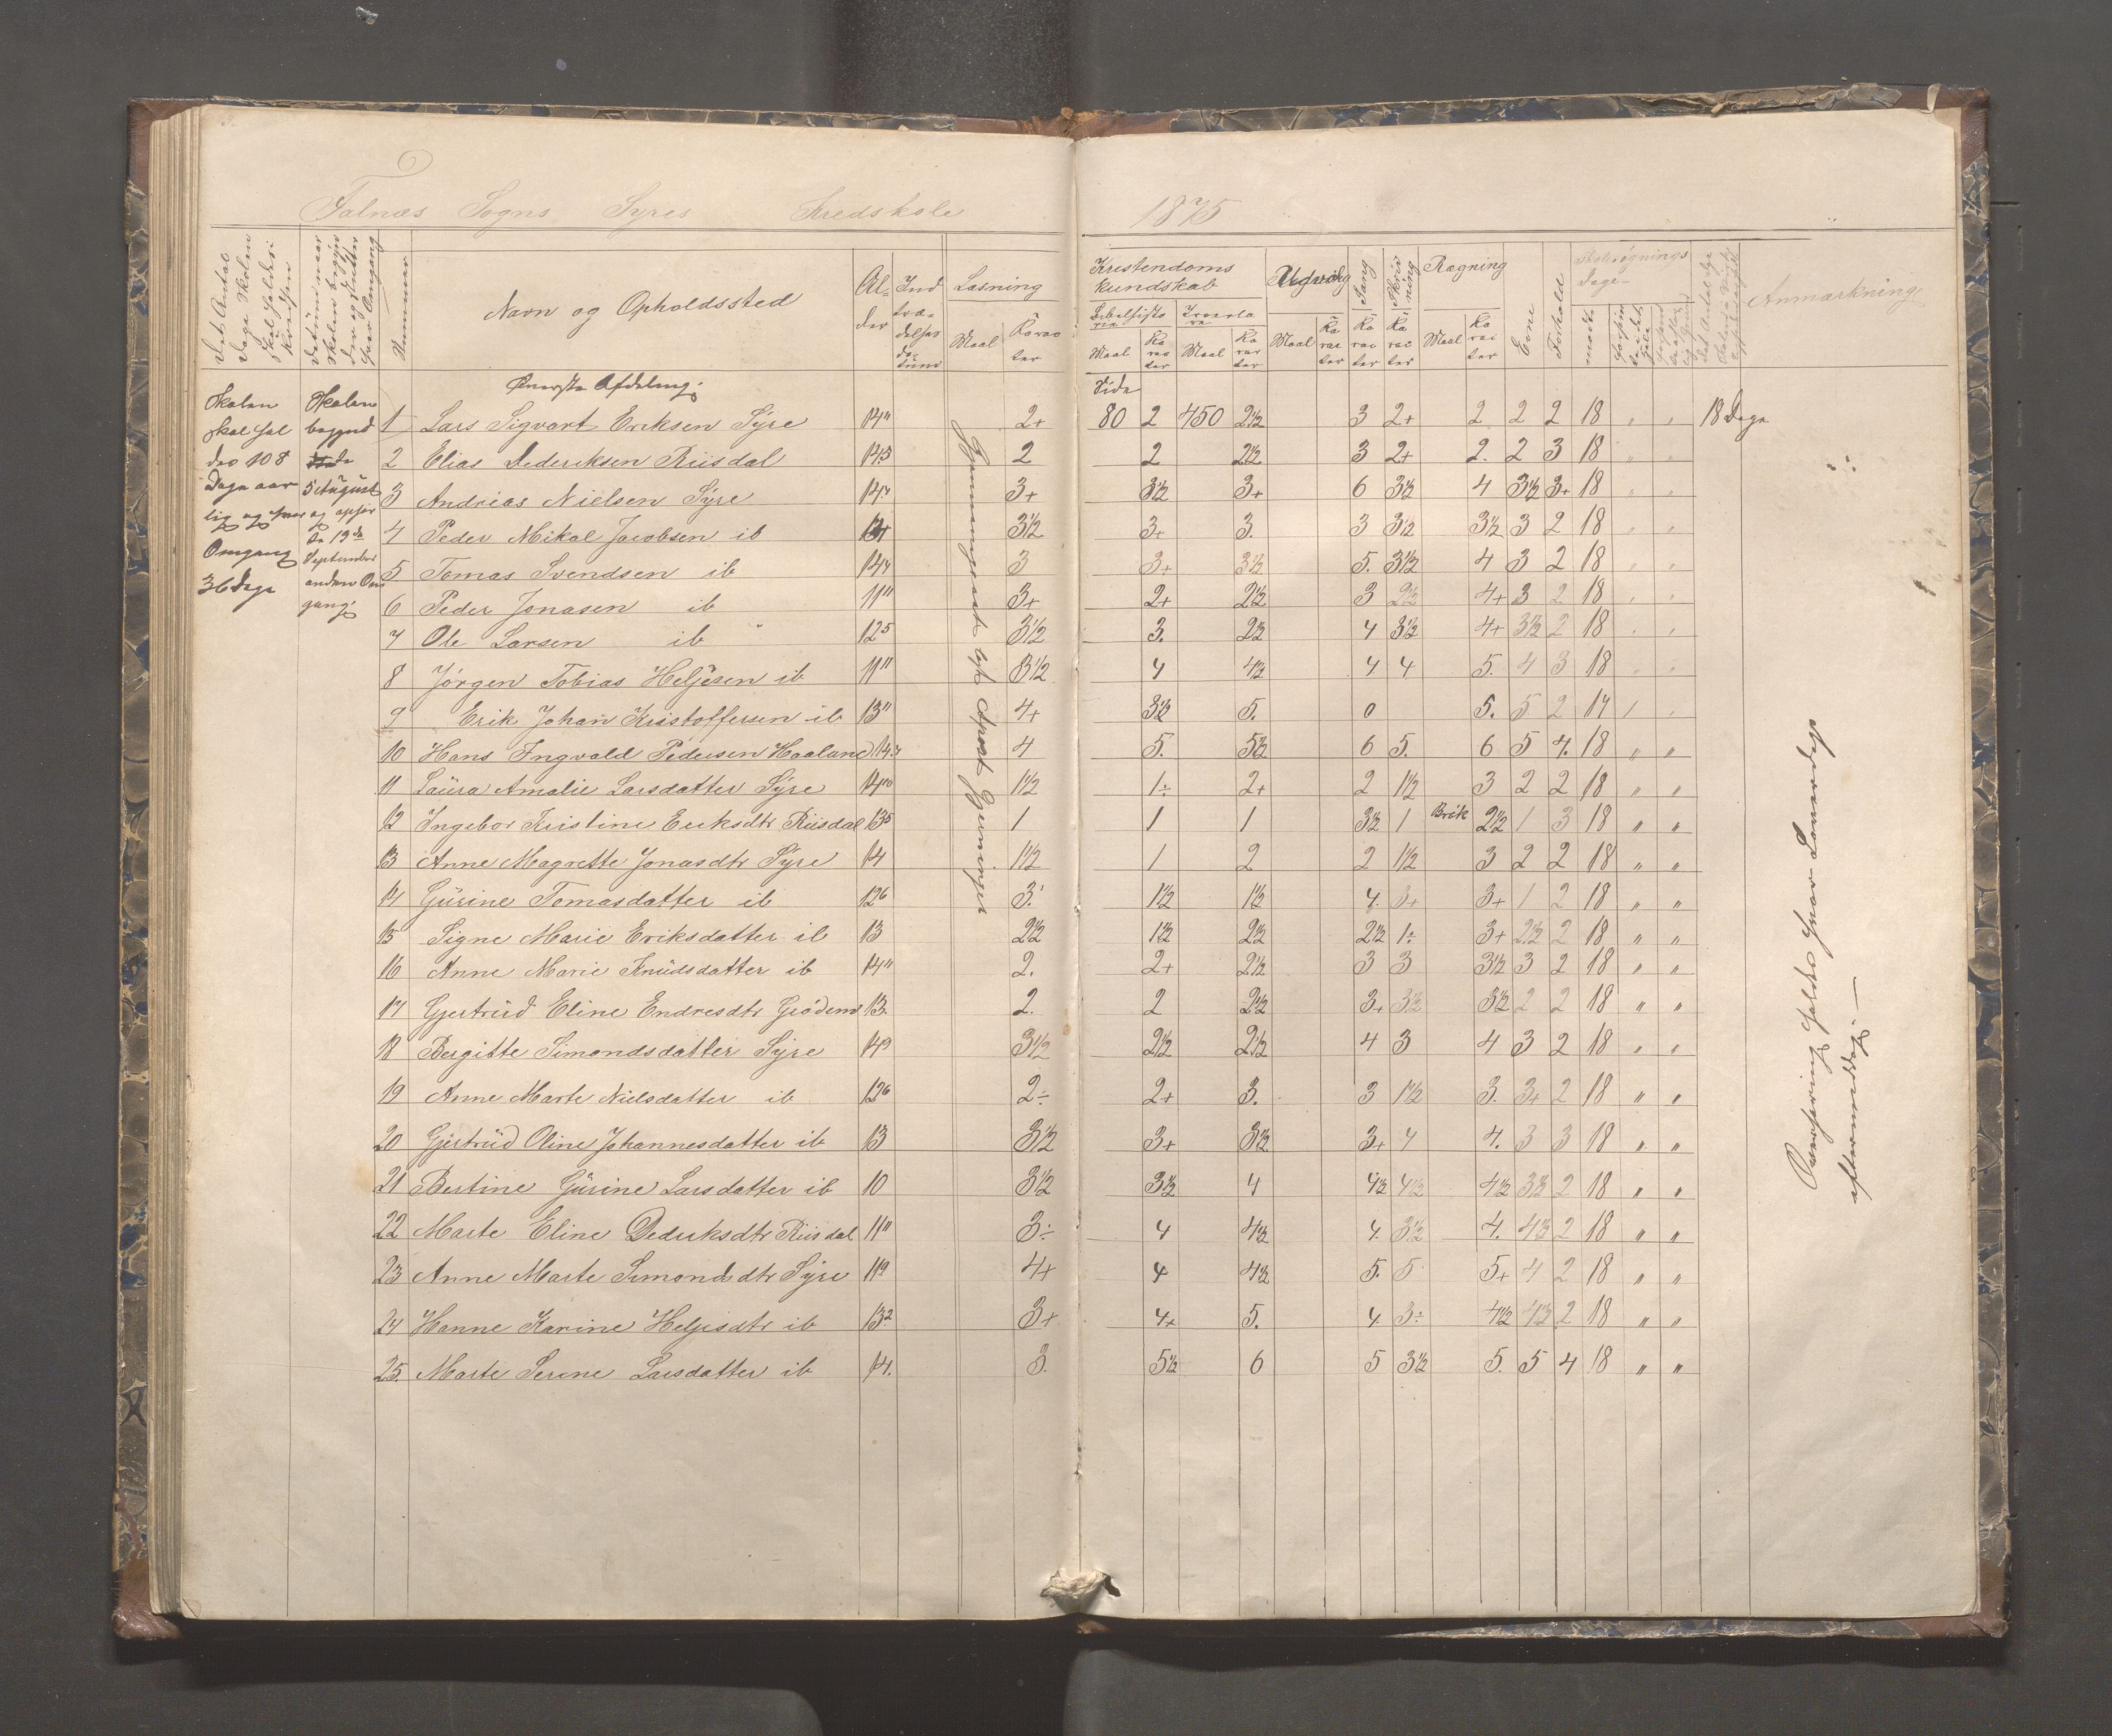 Falnæs Sogns Syres Kredskole 1875
Det Antal Dage Skolen skal holdes i Kredsen
Datum naar Skolen begynder og slutter hver Omgang
Nummer
Navn og Opholdssted
Alder
Indtrædelses datum
Læsning
Maal
Karacter
Kristendoms kundskab
Bibelhistorie
Troeslære
Maal
Karacter
Maal
Karacter
Maal
Karacter
Sang
Karacter
Skrivning
Karacter
Rægning
Maal
Karacter
Evne
Forhold
Skolesøgnings Dage
mødte
Anmærkning
Skolen skal holdes 108 Dage aarlig og hver Omgang 36 Dage
Skolen begynd de 5 August og ophør de 13de September anden Omgang.
Øverste Afdeling.
Side
1 Lars Sigvart Eriksen Syre 14" 2+ 80 2 450 2½ 3 2+ 2 2 2 18 " " 18 Dage
2 Elias Dederiksen Riisdal 14 2 2 2½ 3 2+ 2. 2 3 18 " "
3 Andreas Nielsen Syre 14 3+ 3½ 3+ 6 3½ 4 3½ 3+ 18 " "
4 Peder Mikal Jacobsen ib 3½ 3+ 3. 3 3½ 3½ 3 2 18 " "
5 Tomas Svendsen ib 14 3 3+ 3½ 5. 3½ 4 3 2 18 " "
6 Peder Jonasen ib 11" 3+ 2+ 2½ 3 2½ 4+ 3 2 18 " "
7 Ole Larsen ib 12⁵ 3½ 3. 2½ 4 3½ 4+ 3½ 2 18 " "
8 Jörgen Tobias Heljesen ib 11" 3½ 4 4½ 4 4 5. 4 3 18 " "
9 Erik Johan Kristoffersen ib 13" 4+ 3½ 5. 0 5. 5 2 17 1 "
10 Hans Ingvald Pedersen Haaland 14 4 5. 5½ 6 5. 6 5 4. 18 " "
11 Laura Amalie Larsdatter Syre 14¹⁰ 1½ 1÷ 2+ 2 1½ 3 2 2 18 " "
12 Ingebor Kristine Eriksdtr Riisdal 13⁵ 1 1 1 3½ 1 Brök 2½ 1 3 18 " "
13 Anne Magrette Jonasdtr Syre 14 1½ 1 2 2 1½ 3 2 2 18 " "
14 Gurine Tomasdatter ib 12⁶ 3. 1½ 1½ 4. 3+ 3+ 1 2 18 " "
15 Signe Marie Eriksdatter ib 13 2½ 1½ 2½ 2½ 1÷ 3+ 2½ 2 18 " "
16 Anne Marie Knudsdatter ib 14" 2. 2+ 2½ 3 3 3½ 3 2 18 " "
17 Gjertrud Eline Endresdtr Grödem 13. 2. 2 2½ 3+ 3½ 3½ 2 2 18 " "
18 Bergitte Simondsdatter Syre 14⁹ 3½ 2½ 2½ 4 3 4 3 2 18 " "
19 Anne Marte Nielsdatter ib 12⁶ 2÷ 2+ 3. 3 1½ 3. 3+ 2 18 " "
20 Gjertrud Oline Johannesdatter ib 13 3½ 3+ 3½ 3+ 4 4. 3 3 18 " "
21 Bertine Gurine Larsdatter ib 10 3½ 3½ 4 4½ 4½ 4½ 3½ 2 18 " "
22 Marte Eline Dederiksdtr Riisdal 11" 3÷ 4 4½ 4. 3½ 4. 4½ 2 18 " "
23 Anne Marte Simondsdtr Syre 11⁹ 4+ 4 4½ 5. 5 5+ 4 2 18 " "
24 Hanne Karine Heljesdtr ib 13² 3+ 4+ 5. 4 3÷ 4½ 4½ 2 18 " "
25. Marte Serene Larsdatter ib 14. 3. 5½ 6 5 3½ 5. 5 4 18 " "
Apost. Gjerninger
Overhøring holdes hver Lørverdags eftermiddag. —